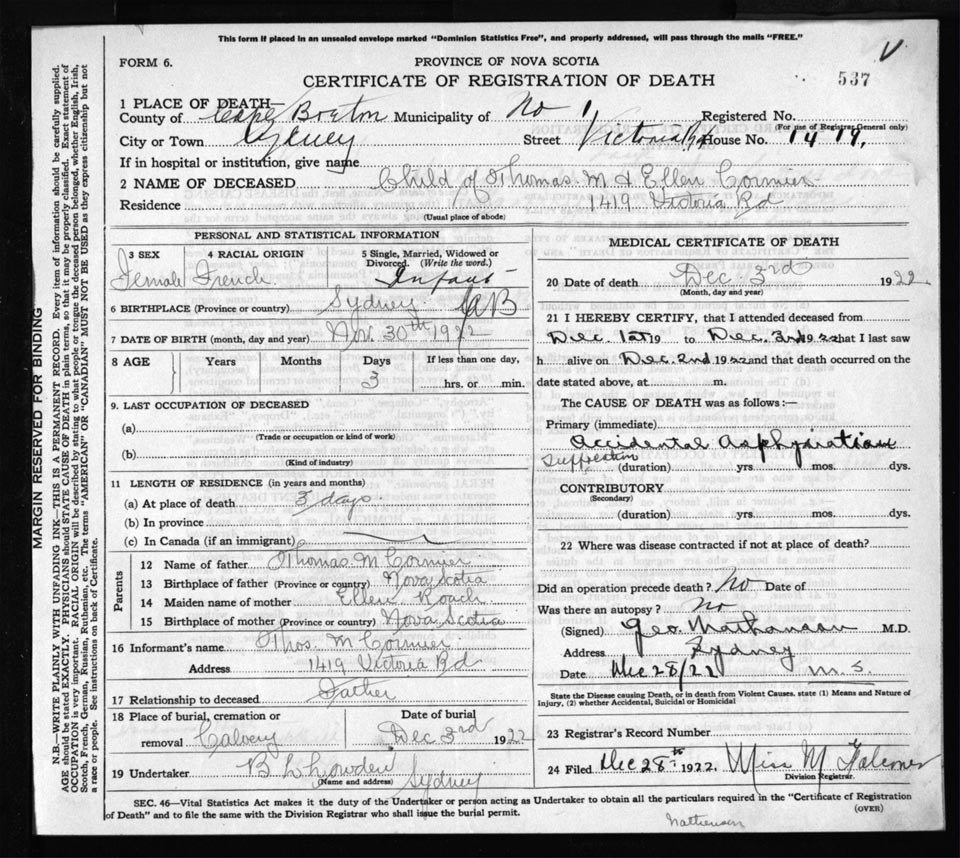 This form if placed in an unsealed envelope marked "Dominion Statistics Free", and properly addressed, will pass through the mails "FREE."
V
FORM 6.
PROVINCE OF NOVA SCOTIA
CERTIFICATE OF REGISTRATION OF DEATH
537
1 PLACE OF DEATH—
County of Cape Breton Municipality of No 1 Registered No.
(For use of Registrar General only)
City or Town Sydney Street Victoria Rd House No. 1419,
If in hospital or institution, give name
2 NAME OF DECEASED Child of Thomas M & Ellen Cormier
Residence 1419 Victoria Rd
(Usual place of abode)
PERSONAL AND STATISTICAL INFORMATION
3 SEX 4 RACIAL ORIGIN 5 Single, Married, Widowed or Divorced. (Write the word.)
Female French Infant
6 BIRTHPLACE (Province or country) Sydney CB
7 DATE OF BIRTH (month, day and year) Nov. 30th 1922
8 AGE Years Months Days If less than one day,
3 hrs. or min.
9. LAST OCCUPATION OF DECEASED
(a)
(Trade or occupation or kind of work)
(b)
(Kind of industry)
11 LENGTH OF RESIDENCE (in years and months)
(a) At place of death 3 days
(b) In province
(c) In Canada (if an immigrant)
Parents
12 Name of father Thomas M Cormier
13 Birthplace of father (Province or country) Nova Scotia
14 Maiden name of mother Ellen Roach
15 Birthplace of mother (Province or country) Nova Scotia
16 Informant's name Thos. M Cormier
Address 1419 Victoria Rd
17 Relationship to deceased Father
18 Place of burial, cremation or removal Calvery
Date of burial Dec 3rd 1922
19 Undertaker
(Name and address) Sydney
MEDICAL CERTIFICATE OF DEATH
20 Date of death Dec. 3rd 1922
(Month, day and year)
21 I HEREBY CERTIFY, that I attended deceased from
Dec. 1st 19 to Dec. 3rd 1922 that I last saw
h alive on Dec. 2nd 1922 and that death occurred on the
date stated above, at m.
The CAUSE OF DEATH was as follows:—
Primary (immediate)
Accidental Asphyxiation
(duration) yrs. mos. dys.
CONTRIBUTORY
(Secondary)
(duration) yrs. mos. dys.
22 Where was disease contracted if not at place of death?
Did an operation precede death? No Date of
Was there an autopsy? No
(Signed) Geo. Mathanson M.D.
Address Sydney
Date Dec 28/22 M.S.
State the Disease causing Death, or in death from Violent Causes, state (1) Means and Nature of
Injury, (2) whether Accidental, Suicidal or Homicidal
23 Registrar's Record Number
24 Filed Dec 28th 1922. Miss M Falconer
Division Registrar.
SEC. 46—Vital Statistics Act makes it the duty of the Undertaker or person acting as Undertaker to obtain all the particulars required in the "Certificate of Registration
of Death" and to file the same with the Division Registrar who shall issue the burial permit.
(OVER)
Mathewson
MARGIN RESERVED FOR BINDING
N.B.—WRITE PLAINLY WITH UNFADING INK—THIS IS A PERMANENT RECORD. Every item of information should be carefully supplied.
AGE should be stated EXACTLY. PHYSICIANS should STATE CAUSE OF DEATH in plain terms, so that it may be properly classified. Exact statement of
OCCUPATION is very important. RACIAL ORIGIN will be described by stating to what people or tongue the deceased person belonged, whether English, Irish,
Scotch, French, German, Russian, Ruthenian, etc. The terms "AMERICAN" OR "CANADIAN" MUST NOT BE USED as they express citizenship but not
a race or people. See instructions on back of Certificate.